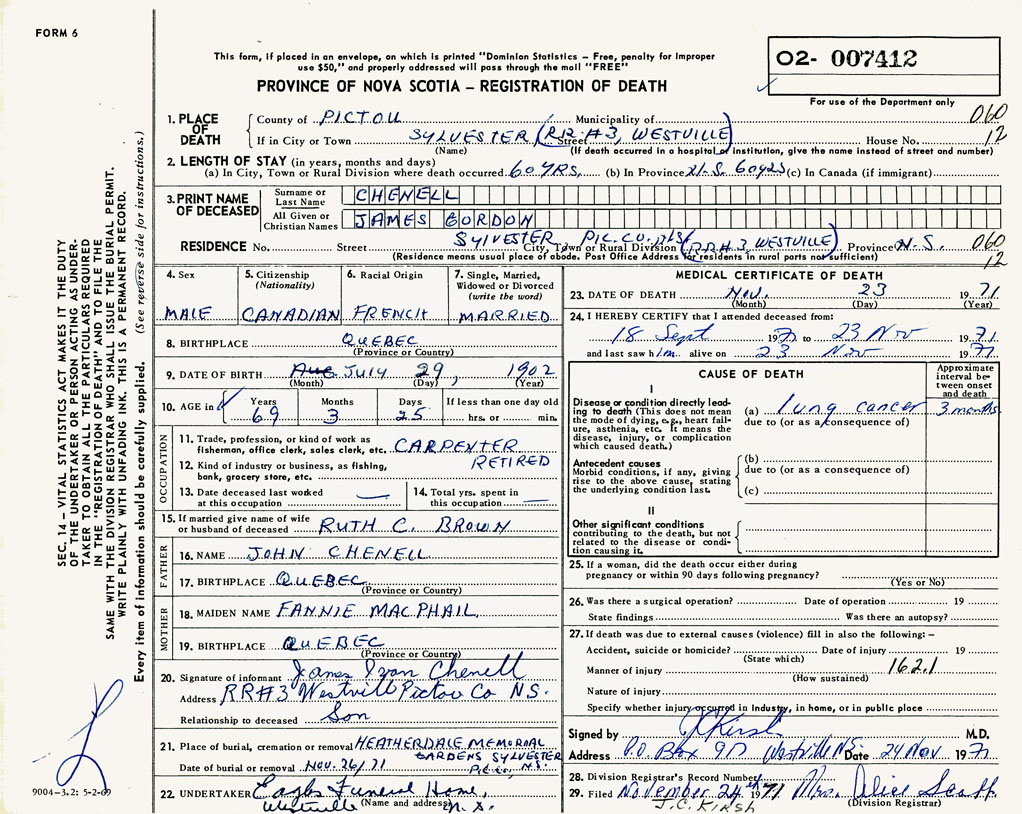 FORM 6
This form, if placed in an envelope, on which is printed "Dominion Statistics – Free, penalty for improper
use $50," and properly addressed will pass through the mail "FREE"
PROVINCE OF NOVA SCOTIA – REGISTRATION OF DEATH
02- 007412
For use of the Department only
1. PLACE OF DEATH County of PICTOU Municipality of 060
If in City or Town SYLVESTER (R.R. #3, WESTVILLE) Street House No. 12
(Name) (If death occurred in a hospital or institution, give the name instead of street and number)
2. LENGTH OF STAY (in years, months and days)
(a) In City, Town or Rural Division where death occurred 60 YRS. (b) In Province N.S. 60 yrs (c) In Canada (if immigrant)
3. PRINT NAME OF DECEASED Surname or Last Name CHENELL
All Given or Christian Names JAMES GORDON
RESIDENCE No. Street SYLVESTER PIC. CO. N.S. (R.R. #3, WESTVILLE) City, Town or Rural Division Province N.S. 060
(Residence means usual place of abode. Post Office Address for residents in rural parts not sufficient) 12
4. Sex MALE
5. Citizenship (Nationality) CANADIAN
6. Racial Origin FRENCH
7. Single, Married, Widowed or Divorced (write the word) MARRIED
8. BIRTHPLACE QUEBEC
(Province or Country)
9. DATE OF BIRTH Aug JULY 29, 1902
(Month) (Day) (Year)
10. AGE in Years 69 Months 3 Days 25 If less than one day old hrs. or min.
OCCUPATION
11. Trade, profession, or kind of work as fisherman, office clerk, sales clerk, etc. CARPENTER
RETIRED
12. Kind of industry or business, as fishing, bank, grocery store, etc.
13. Date deceased last worked at this occupation —
14. Total yrs. spent in this occupation —
15. If married give name of wife or husband of deceased RUTH C. BROWN
FATHER
16. NAME JOHN CHENELL
17. BIRTHPLACE QUEBEC
(Province or Country)
MOTHER
18. MAIDEN NAME FANNIE MACPHAIL
19. BIRTHPLACE QUEBEC
(Province or Country)
20. Signature of informant James Ivan Chenell
Address RR#3 Westville Pictou Co N.S.
Relationship to deceased Son
21. Place of burial, cremation or removal HEATHERDALE MEMORIAL
GARDENS SYLVESTER
Date of burial or removal NOV. 26/71 Pic. Co. N.S.
22. UNDERTAKER Eagles Funeral Home,
Westville (Name and address) N.S.
MEDICAL CERTIFICATE OF DEATH
23. DATE OF DEATH Nov. 23 1971
(Month) (Day) (Year)
24. I HEREBY CERTIFY that I attended deceased from:
18 Sept 1971 to 23 Nov 1971
and last saw him alive on 23 Nov 1971
CAUSE OF DEATH
Approximate interval between onset and death
I
Disease or condition directly leading to death (This does not mean the mode of dying, e.g., heart failure, asthenia, etc. It means the disease, injury, or complication which caused death.)
(a) lung cancer 3 months
due to (or as a consequence of)
Antecedent causes
Morbid conditions, if any, giving rise to the above cause, stating the underlying condition last.
(b)
due to (or as a consequence of)
(c)
II
Other significant conditions
contributing to the death, but not related to the disease or condition causing it.
25. If a woman, did the death occur either during pregnancy or within 90 days following pregnancy?
(Yes or No)
26. Was there a surgical operation? Date of operation 19
State findings Was there an autopsy?
27. If death was due to external causes (violence) fill in also the following:–
Accident, suicide or homicide? Date of injury 19
(State which)
Manner of injury 162.1
(How sustained)
Nature of injury
Specify whether injury occurred in industry, in home, or in public place
Signed by J C Kirsh M.D.
Address P.O. Box 90 Westville N.S. Date 24 Nov 1971
28. Division Registrar's Record Number
29. Filed November 24th 1971 Mrs. Alice
J.C. KIRSH (Division Registrar)
SEC. 14 – VITAL STATISTICS ACT MAKES IT THE DUTY
OF THE UNDERTAKER OR PERSON ACTING AS UNDER-
TAKER TO OBTAIN ALL THE PARTICULARS REQUIRED
IN THE "REGISTRATION OF DEATH" AND TO FILE THE
SAME WITH THE DIVISION REGISTRAR WHO SHALL ISSUE THE BURIAL PERMIT.
WRITE PLAINLY WITH UNFADING INK. THIS IS A PERMANENT RECORD.
Every item of information should be carefully supplied. (See reverse side for instructions.)
9004-3.2: 5-2-69